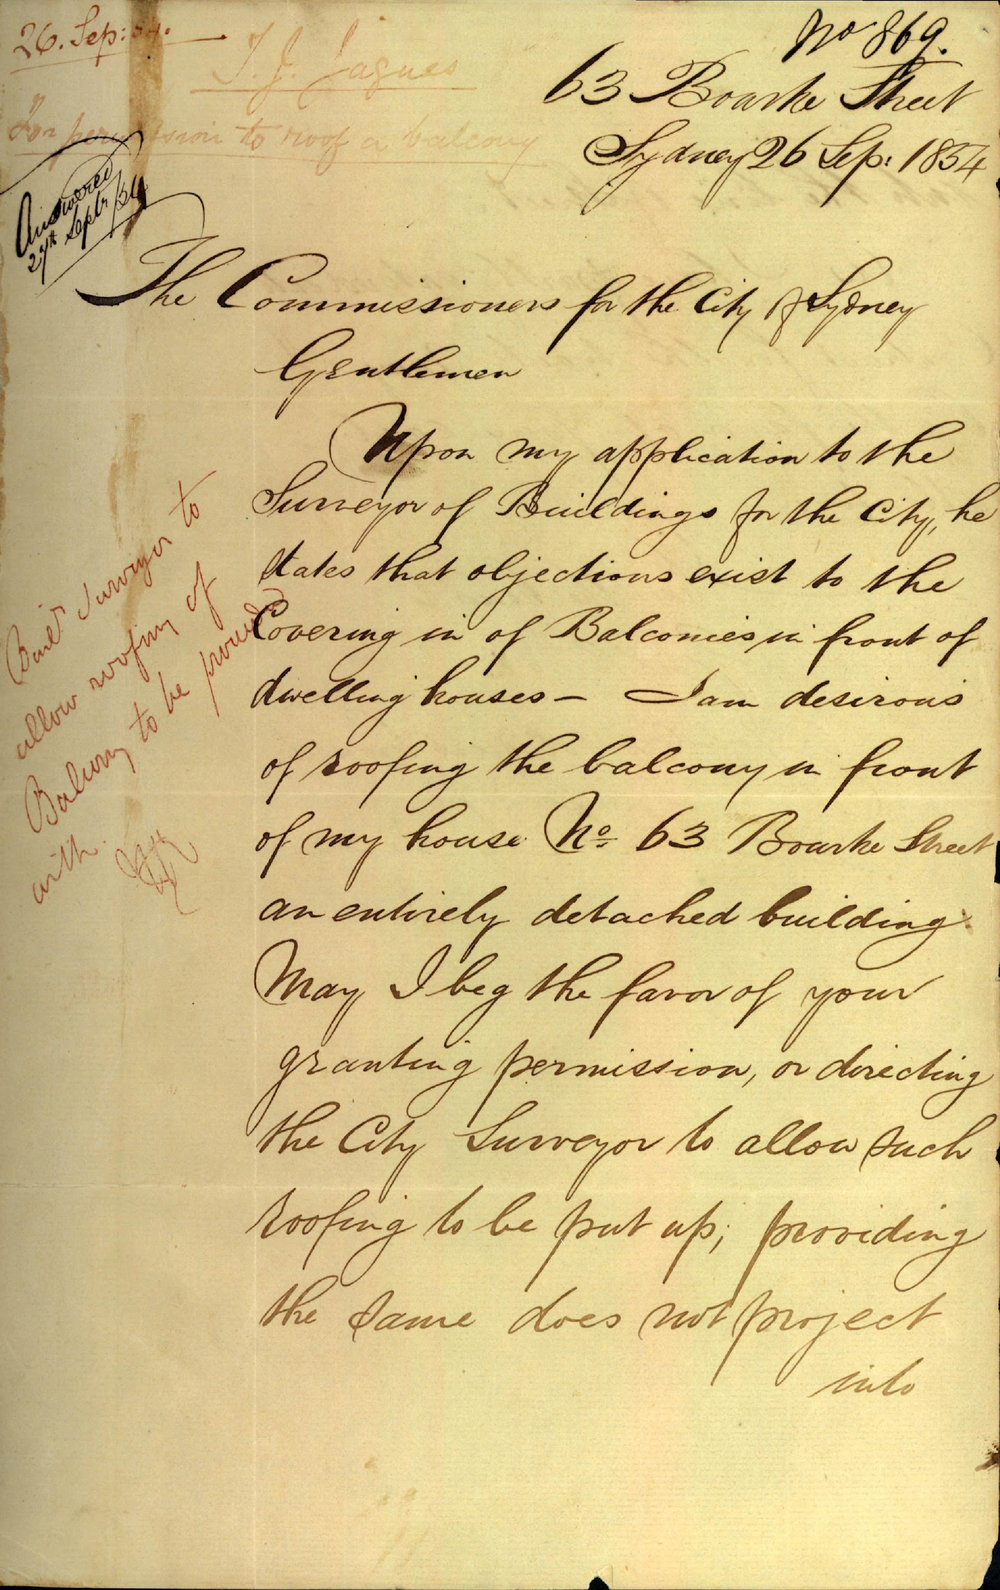 26. Sep: 54.
T. J. Jaques
For permission to roof a balcony
Answered
27th Septr/54
No 869.
63 Bourke Street
Sydney 26 Sep: 1854
The Commissioners for the City of Sydney
Gentlemen
Upon my application to the
Surveyor of Buildings for the City, he
states that objections exist to the
Covering in of Balconies in front of
dwelling houses – I am desirous
of roofing the balcony in front
of my house No 63 Bourke Street
an entirely detached building.
May I beg the favor of your
granting permission, or directing
the City Surveyor to allow such
roofing to be put up; providing
the same does not project
into
Buildg Surveyor to
allow roofing of
Balcony to be proceeded
with